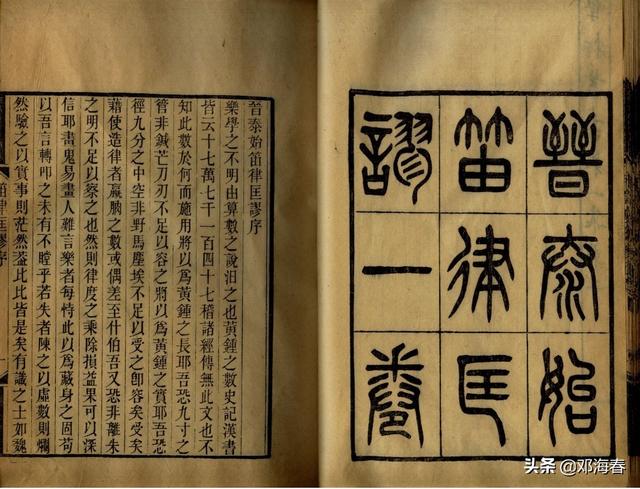 晉泰始
笛律匡
謬一卷
晉泰始笛律匡謬序
樂學之不明由算數之說汨之也黃鍾之數史記漢書
皆云十七萬七千一百四十七稽諸經傳無此文也不
知此數於何而施用將以爲黃鍾之長耶吾恐九寸之
管非鍼芒刀刃不足以容之將以爲黃鍾之實耶吾恐
徑九分之中空非野馬塵埃不足以受之卽容矣受矣
藉使造律者贏朒之數或偶差至什伯吾又恐非離朱
之明不足以察之也然則律度之乘除損益果可以深
信耶畫鬼易畫人難言樂者每恃此以爲藏身之固苟
以吾言轉叩之未有不瞠乎若失者陳之以虛數則爛
然驗之以實事則茫然蓋比比皆是矣有識之士如魏
笛律匡謬序
头条 @邓海春